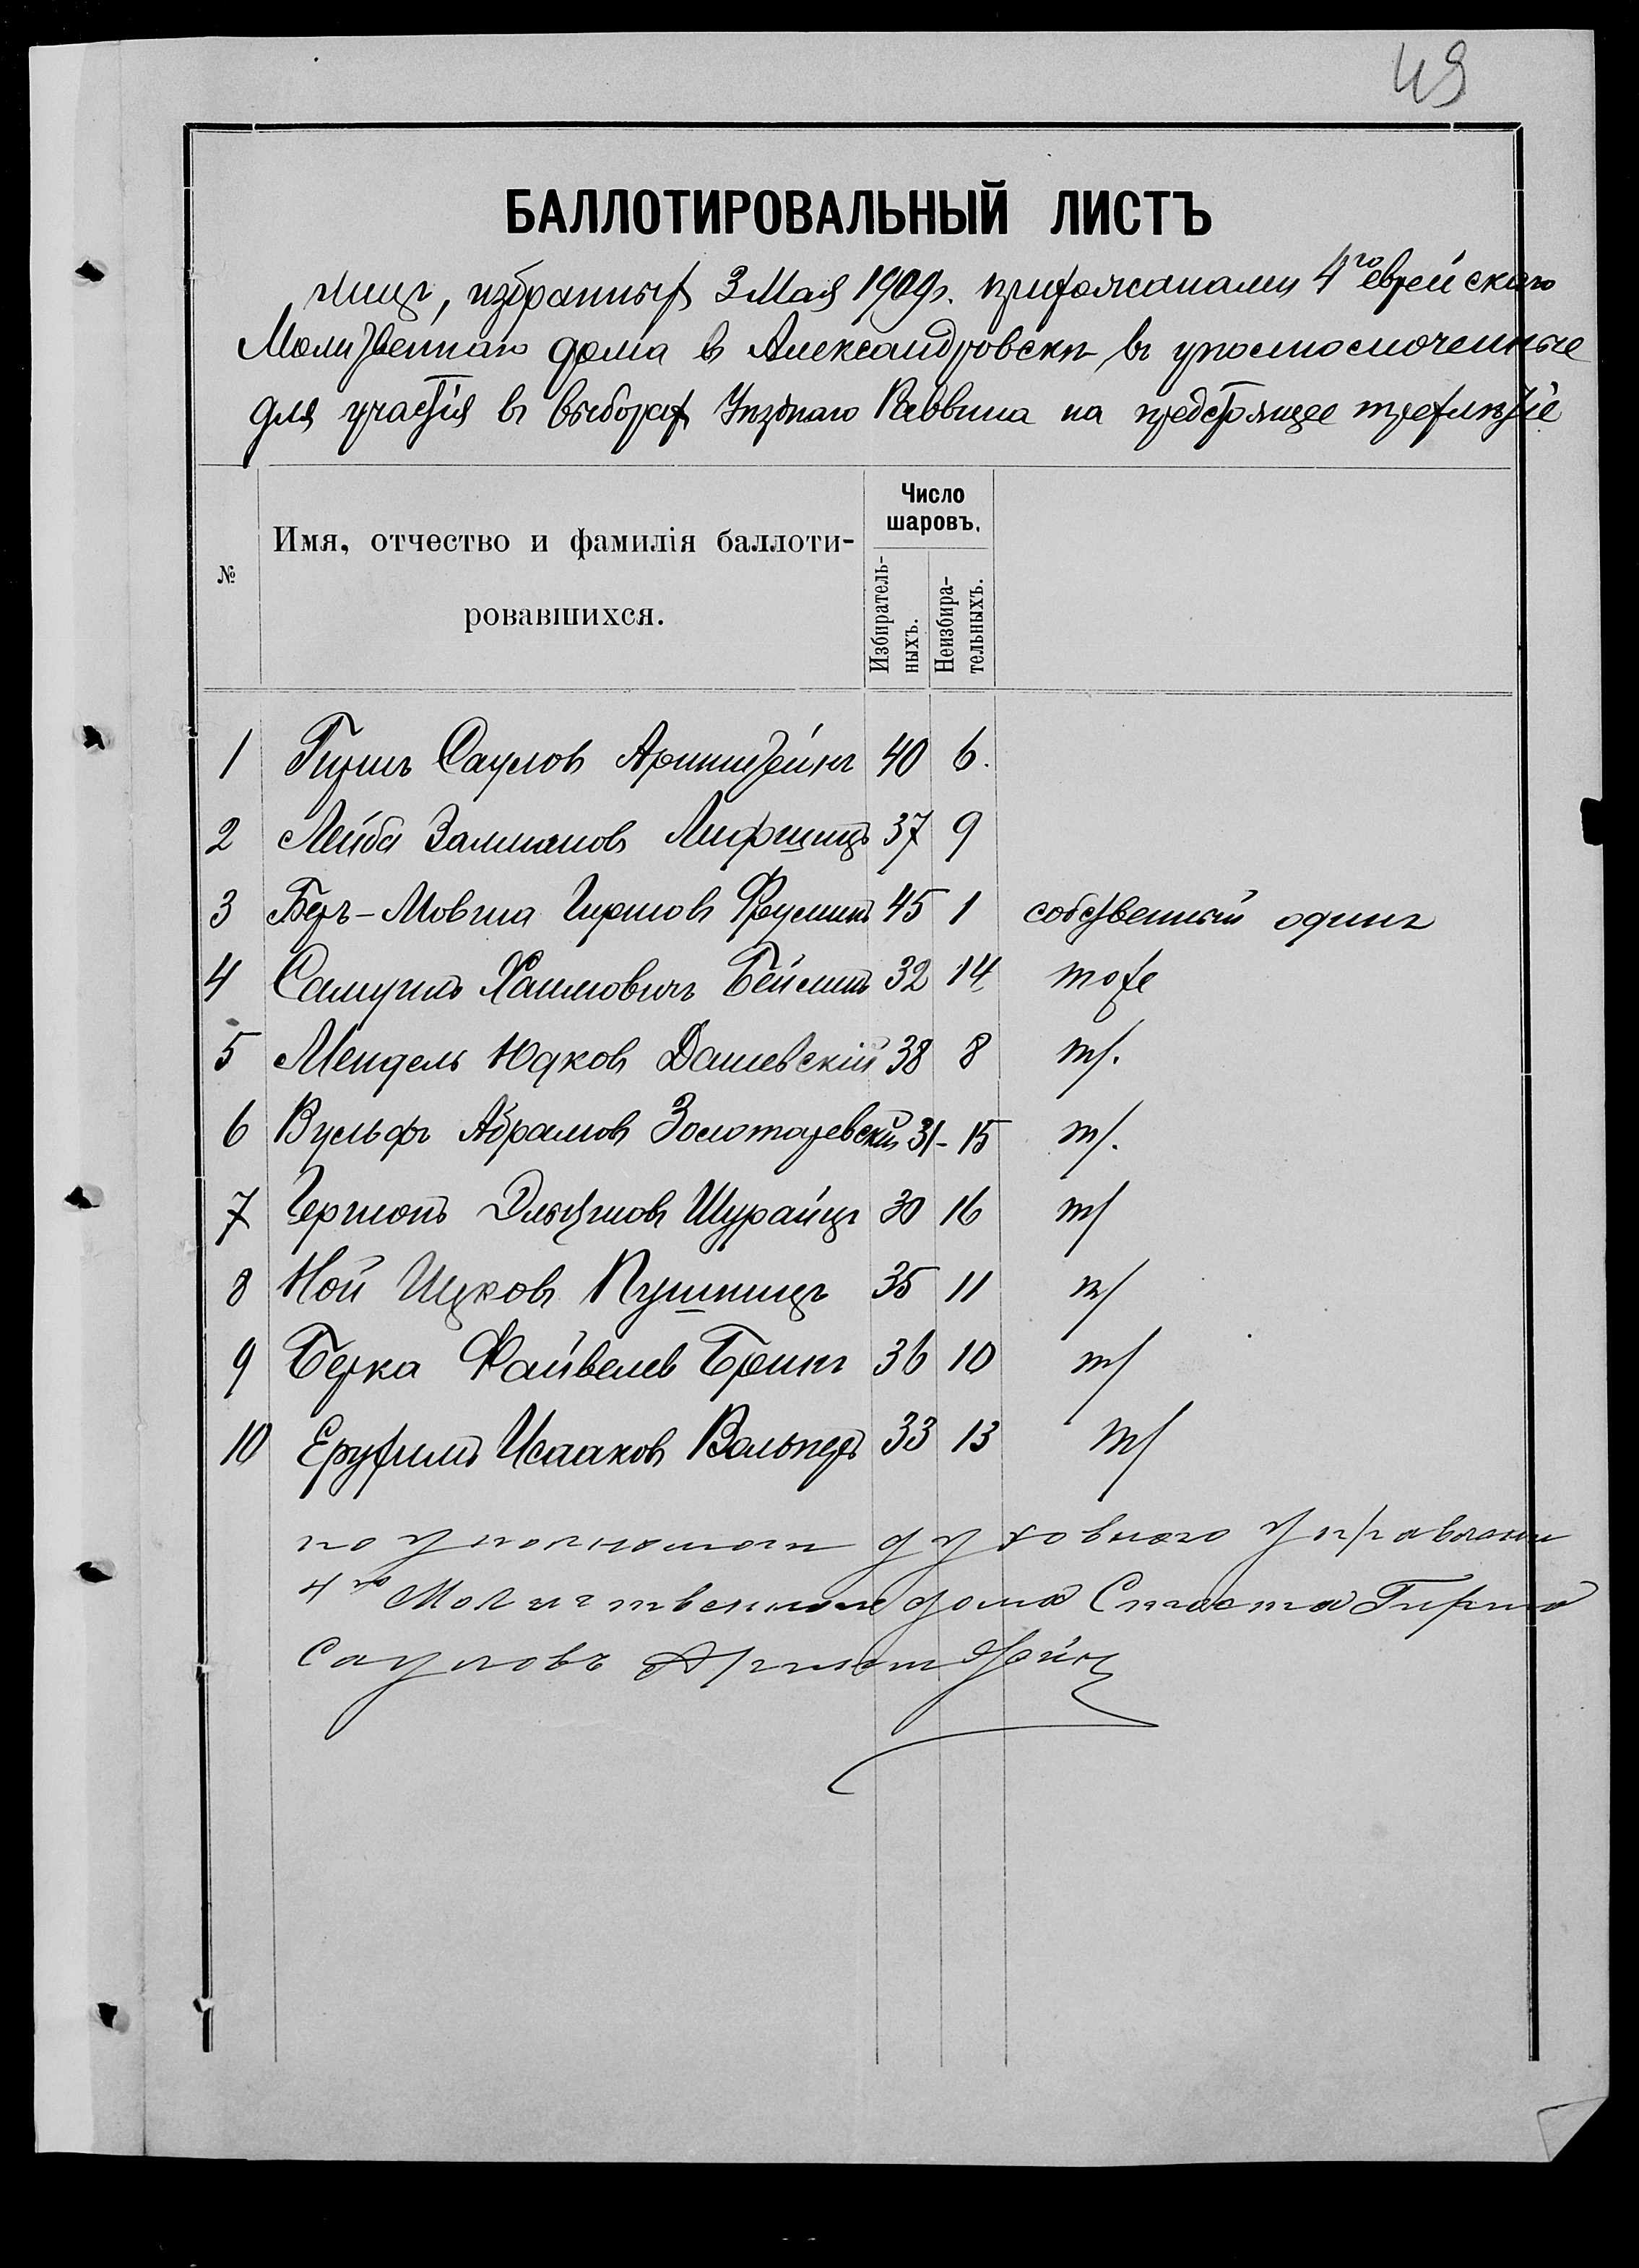 49
БАЛЛОТИРОВАЛЬНЫЙ ЛИСТЪ
лицъ, избранныхъ 3 Мая 1909 г. прихожанами 4го еврейскаго
Молитвеннаго дома въ Александровскѣ въ уполномоченные
для участія въ выборахъ Уѣзднаго Раввина на предстоящее трехлѣтіе
№
Имя, отчество и фамилія баллоти-
ровавшихся.
Число
шаровъ.
Избиратель-
ныхъ.
Неизбира-
тельныхъ.
1 Гиршъ Саулов Аринштейнъ 40 6.
2 Лейба Залманов Лифшицъ 37 9
3 Беръ-Мовша Гиршов Фрумин 45 1 собственный одинъ
4 Самуилъ Хаимовичъ Бейлинъ 32 14 тоже
5 Мендель Юдков Дашевскій 38 8 т/.
6 Вульфъ Абрамов Золотаревскій 31 - 15 т/.
7 Гершонъ Шурайцъ 30 16 т/
8 Ной Ицков Пушницъ 35 11 т/
9 Берка Файвелев Бринъ 36 10 т/
10 Ерухимъ Исааков Вольперъ 33 13 т/
духовного управления
4го Молитвенного дома Гирша
Сауловъ Аринштейнъ